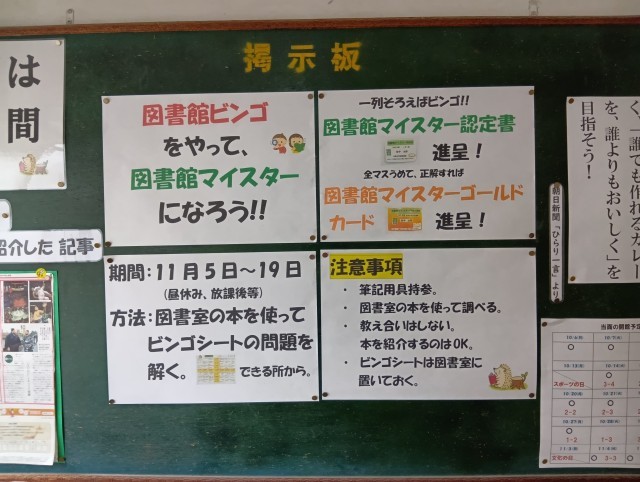 掲示板
は
間
紹介した 記事
図書館ビンゴ
をやって、
図書館マイスター
になろう!!
一列そろえばビンゴ!!
図書館マイスター認定書
進呈!
全マスうめて、正解すれば
図書館マイスターゴールド
カード 進呈!
期間:11月5日~19日
(昼休み、放課後等)
方法:図書室の本を使って
ビンゴシートの問題を
解く。 できる所から。
注意事項
・ 筆記用具持参。
・ 図書室の本を使って調べる。
・ 教え合いはしない。
本を紹介するのはOK。
・ ビンゴシートは図書室に
置いておく。
く、誰でも作れるカレー
を、誰よりもおいしく」を
目指そう!
朝日新聞「ひらり一言」より
当面の開館予定
スポーツの日
3-4
2-2
2-3
1-2
1-3
文化の日
3-3